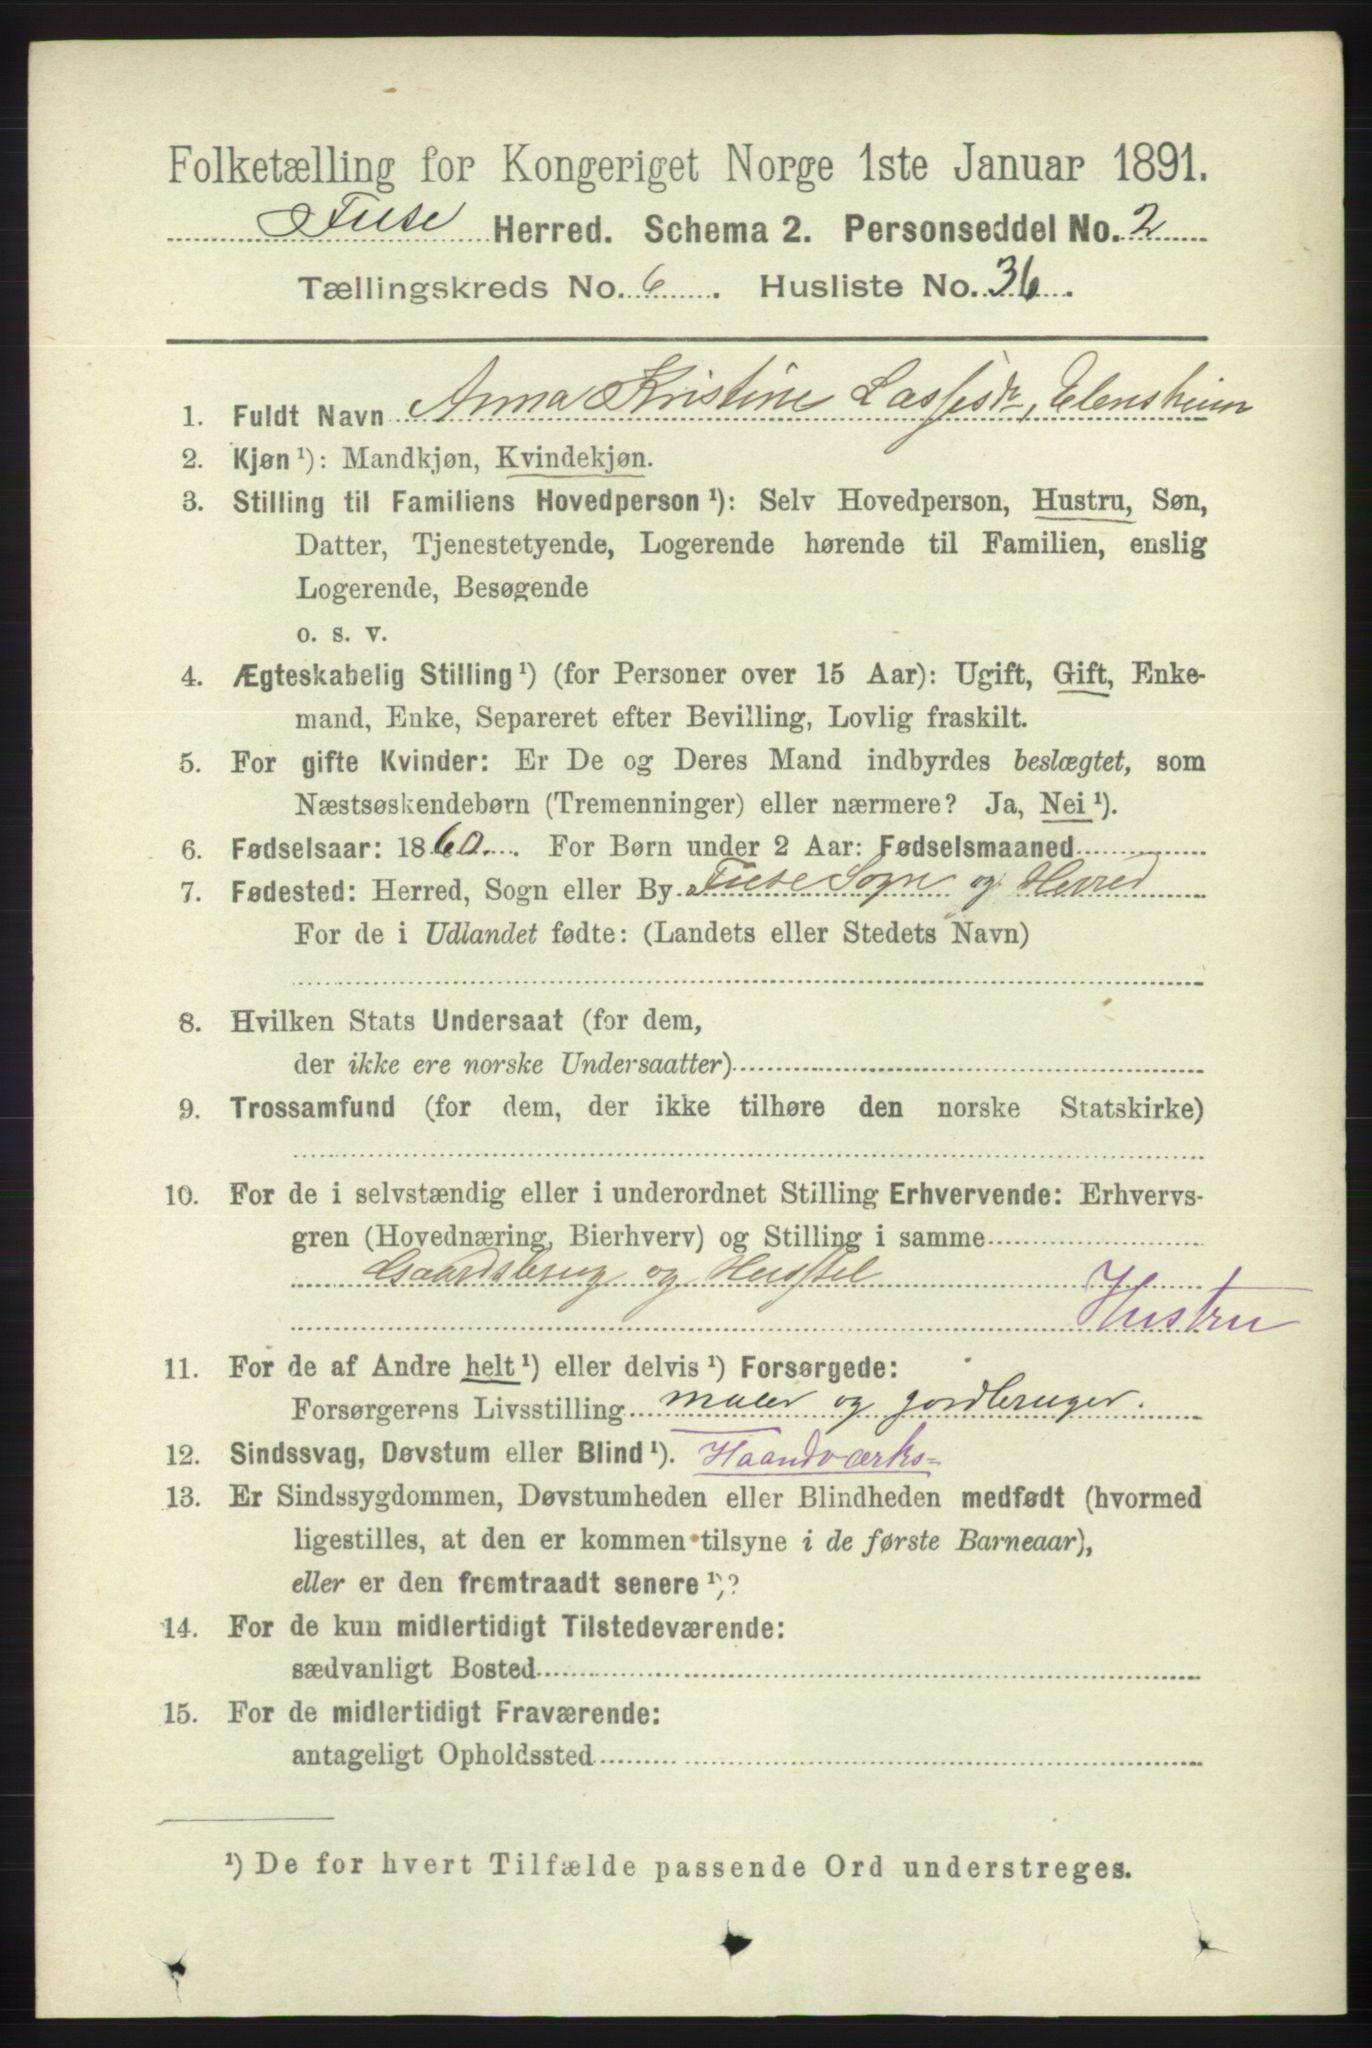 Folketælling for Kongeriget Norge 1ste Januar 1891.
Fuse Herred. Schema 2. Personseddel No. 2
Tællingskreds No. 6. Husliste No. 36.
1. Fuldt Navn Anna Kristine Lassesdr, Elensheim
2. Kjøn ¹): Mandkjøn, Kvindekjøn.
3. Stilling til Familiens Hovedperson ¹): Selv Hovedperson, Hustru, Søn,
Datter, Tjenestetyende, Logerende hørende til Familien, enslig
Logerende, Besøgende
o. s. v.
4. Ægteskabelig Stilling ¹) (for Personer over 15 Aar): Ugift, Gift, Enke-
mand, Enke, Separeret efter Bevilling, Lovlig fraskilt.
5. For gifte Kvinder: Er De og Deres Mand indbyrdes beslægtet, som
Næstsøskendebørn (Tremenninger) eller nærmere? Ja, Nei ¹).
6. Fødselsaar: 1860. For Børn under 2 Aar: Fødselsmaaned
7. Fødested: Herred, Sogn eller By Fuse Sogn og Herred
For de i Udlandet fødte: (Landets eller Stedets Navn)
8. Hvilken Stats Undersaat (for dem,
der ikke ere norske Undersaatter)
9. Trossamfund (for dem, der ikke tilhøre den norske Statskirke)
10. For de i selvstændig eller i underordnet Stilling Erhvervende: Erhvervs-
gren (Hovednæring, Bierhverv) og Stilling i samme
Gaardsbrug og Husstel
Hustru
11. For de af Andre helt ¹) eller delvis ¹) Forsørgede:
Forsørgerens Livsstilling maler og jordbruger.
12. Sindssvag, Døvstum eller Blind ¹). Haandværks-
13. Er Sindssygdommen, Døvstumheden eller Blindheden medfødt (hvormed
ligestilles, at den er kommen tilsyne i de første Barneaar),
eller er den fremtraadt senere ¹)?
14. For de kun midlertidigt Tilstedeværende:
sædvanligt Bosted
15. For de midlertidigt Fraværende:
antageligt Opholdssted
¹) De for hvert Tilfælde passende Ord understreges.